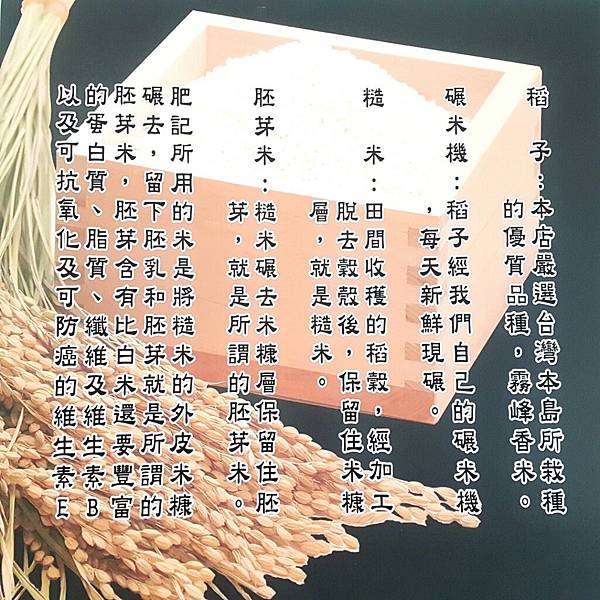 稻　子：本店嚴選台灣本島所栽種
的優質品種，霧峰香米。
碾米機：稻子經我們自己的碾米機
，每天新鮮現碾。
糙　米：田間收穫的稻穀，經加工
脫去穀殼後，保留住米糠
層，就是糙米。
胚芽米：糙米碾去米糠層保留住胚
芽，就是所謂的胚芽米。
肥記所用的米是將糙米的外皮米糠
碾去，留下胚乳和胚芽就是所謂的
胚芽米，胚芽含有比白米還要豐富
的蛋白質、脂質、纖維及維生素B
以及可抗氧化及可防癌的維生素E